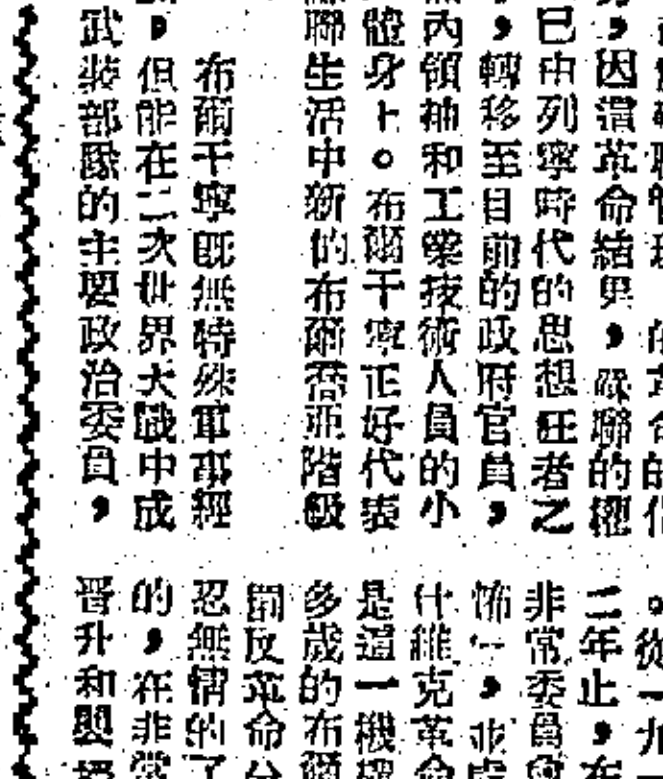 因爲革命結果,蘇聯的權
已由列寧時代的思想狂者之
,轉移至目前的政府官員,
內領袖和工業技術人員的小
體身上。布爾干寧正好代表
聯生活中新的布爾喬亞階級
布爾干寧既無特殊軍事經
但能在二次世界大戰中成
武裝部隊的主要政治委員,
。從一九
二年止,在
非常委員會
怖,並
什維克革命
是這一機構
多歲的布爾
間反革命分
忍無情的了
的,在非常
晉升和與